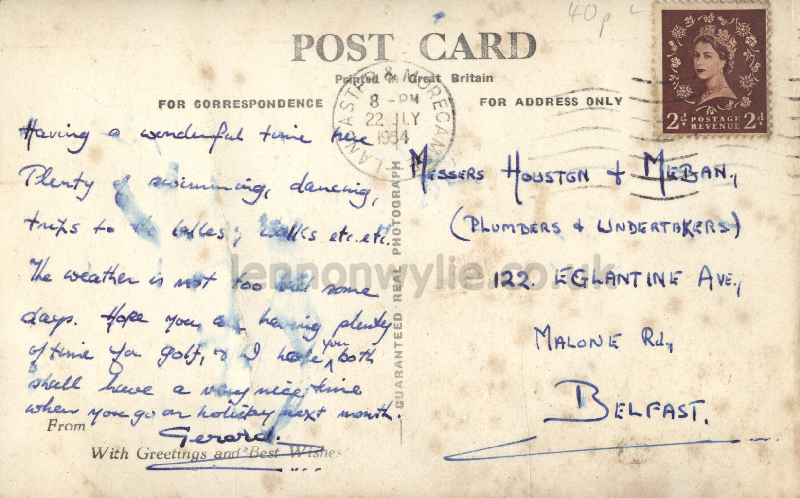 40p
POST CARD
Printed in Great Britain
LANCASTER & MORECAMBE
8 - PM
22 JLY
1954
2d POSTAGE REVENUE 2d
FOR CORRESPONDENCE
Having a wonderful time here
Plenty of swimming, dancing,
trips to the lakes, walks etc. etc.
The weather is not too bad some
days. Hope you are having plenty
of time for golf, & I hope you both
shall have a very nice time
when you go on holiday next month.
From
Gerard.
With Greetings and Best Wishes
GUARANTEED REAL PHOTOGRAPH
FOR ADDRESS ONLY
Messers Houston & McBan,
(Plumbers & Undertakers)
122 Eglantine Ave.,
Malone Rd.,
Belfast.
lennonwylie.co.uk